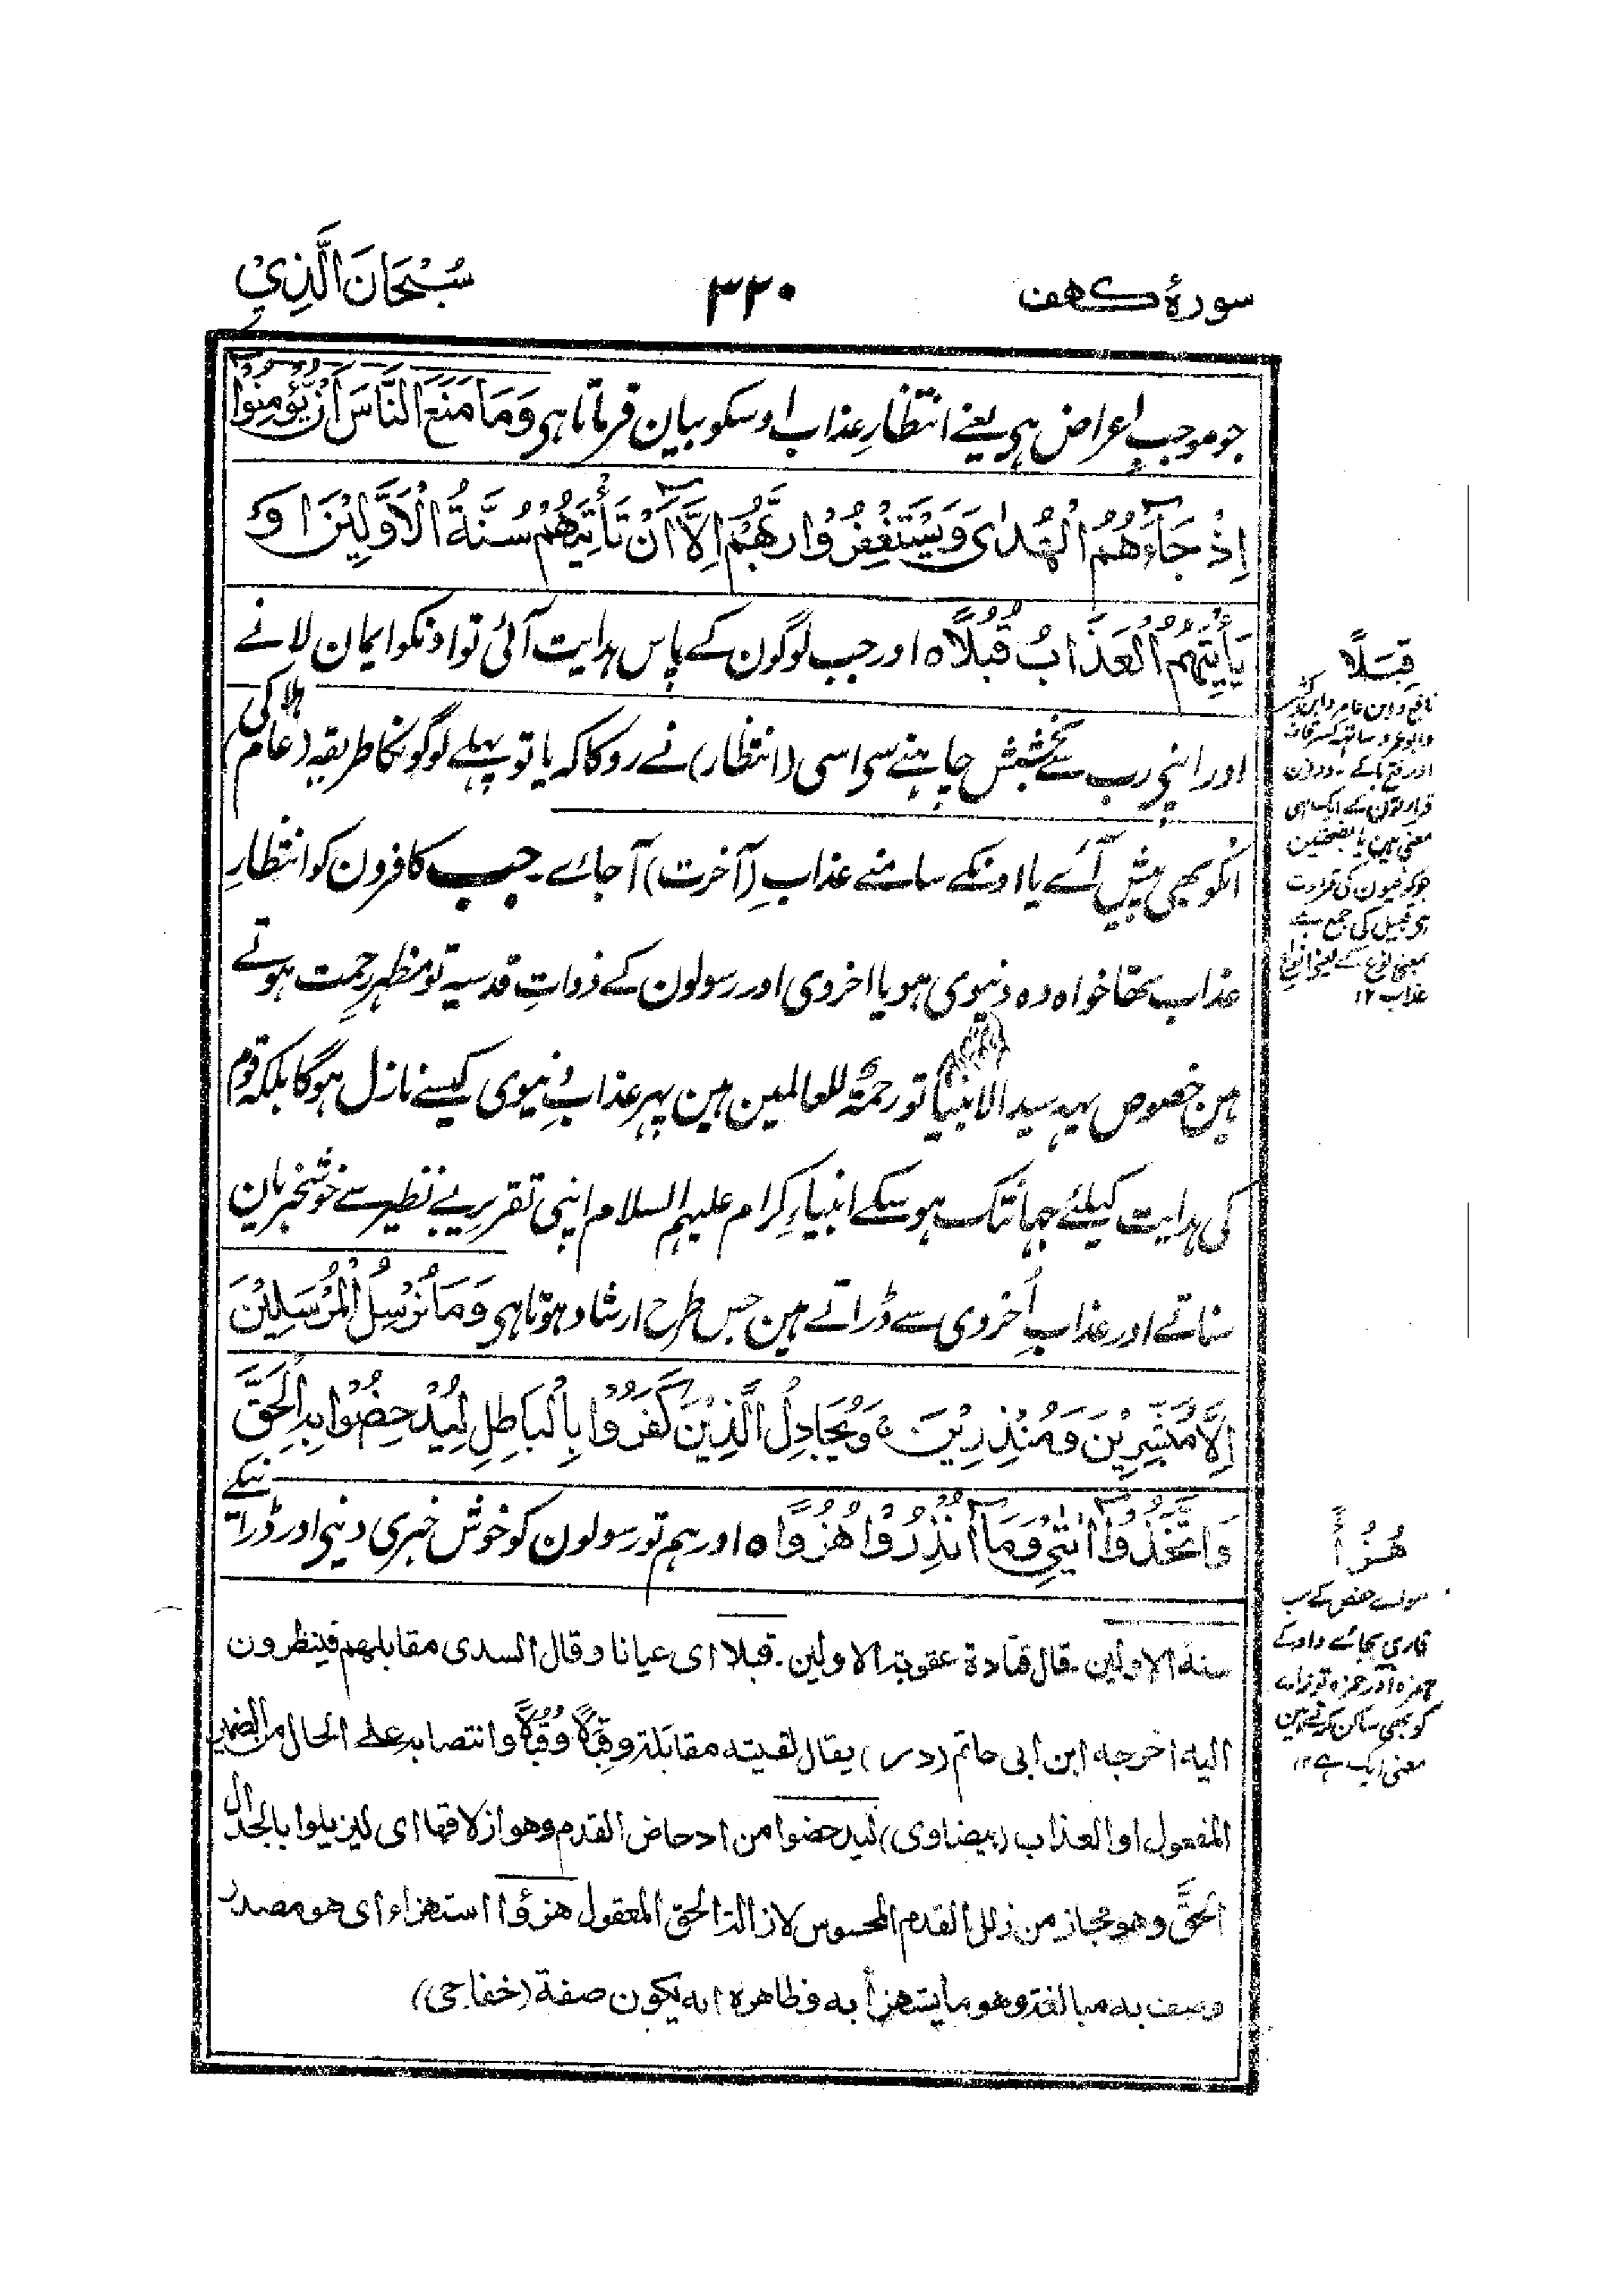 سورۂ کهف
۳۲۰
سُبْحَانَ الَّذِيْ
جو موجب اعراض ہی یعنے انتظارِ عذاب اوسکو بیان فرماتا ہی وَمَا مَنَعَ النَّاسَ اَنْ يُّؤْمِنُوْٓا
اِذْ جَآءَهُمُ الْهُدٰى وَيَسْتَغْفِرُوْا رَبَّهُمْ اِلَّآ اَنْ تَأْتِيَهُمْ سُنَّةُ الْاَوَّلِيْنَ اَوْ
يَأْتِيَهُمُ الْعَذَابُ قُبُلًا ٥ اور جب لوگون کے پاس ہدایت آئی تو اونکو ایمان لانے
اور اپنی رب سے بخشش چاہنے سی اسی (انتظار) نے روکا کہ یا تو پہلے لوگونکا طریقہ (عام ہلاکی)
انکو بھی پیش آئے یا اونکے سامنے عذابِ (آخرت) آجاے۔ جب کافرون کو انتظارِ
عذاب تھا خواہ وہ دنیوی ہو یا اخروی اور رسولون کے ذواتِ قدسیہ تو مظہرِ رحمت ہوتے
ہین خصوص یہہ سید الانبیا تو رحمۃٌ للعالمین ہین پہر عذابِ دنیوی کیسے نازل ہوگا بلکہ قوم
کی ہدایت کیلئے جہانتک ہوسکے انبیاءِ کرام علیہم السلام اپنی تقریر بے نظیر سے خوشخبریان
سناتے اور عذابِ اُخروی سے ڈراتے ہین جس طرح ارشاد ہوتا ہی وَمَا نُرْسِلُ الْمُرْسَلِيْنَ
اِلَّا مُبَشِّرِيْنَ وَمُنْذِرِيْنَ ۚ وَيُجَادِلُ الَّذِيْنَ كَفَرُوْا بِالْبَاطِلِ لِيُدْحِضُوْا بِهِ الْحَقَّ
وَاتَّخَذُوْٓا اٰيٰتِيْ وَمَآ اُنْذِرُوْا هُزُوًا ٥ اور ہم تو رسولون کو خوش خبری دینی اور ڈرانیکے
سنة الاولین۔ قال قتادة عقوبة الاولین۔ قبلا ای عیانا وقال السدی مقابلهم فینظرون
الیه اخرجه ابن ابی حاتم (در) یقال لقیته مقابلة وقِبَلًا وقُبُلًا وانتصابه علی الحال من الضمیر
المفعول او العذاب (بیضاوی) لیدحضوا من ادحاض القدم وهو ازلاقها ای لیزیلوا بالجدال
الحقَّ وهو مجاز من زلل القدم المحسوس لازالة الحق المعقول هزؤًا استهزاء ای هو مصدر
وصف به مبالغة وهو ما یستهزأ به وظاهره انه یکون صفة (خفاجی)
قِبَلًا
نافع و ابن عامر و ابن کثیر
و ابو عمرو ساتھ کسر قاف
اور فتح با کے۔ دونون
قراءتون کے ایک ہی
معنی ہین یا بضمتین
جو کوفیون کی قراءت
ہی قبیل کی جمع ہے
بمعنی نوع کے یعنی انواع
عذاب ۱۲
هُزُأً
سوائے حفص کے سب
قاری بجائے واو کے
ہمزہ اور حمزہ تو زاء
کو بھی ساکن کرتے ہین
معنی ایک ہے ۱۲